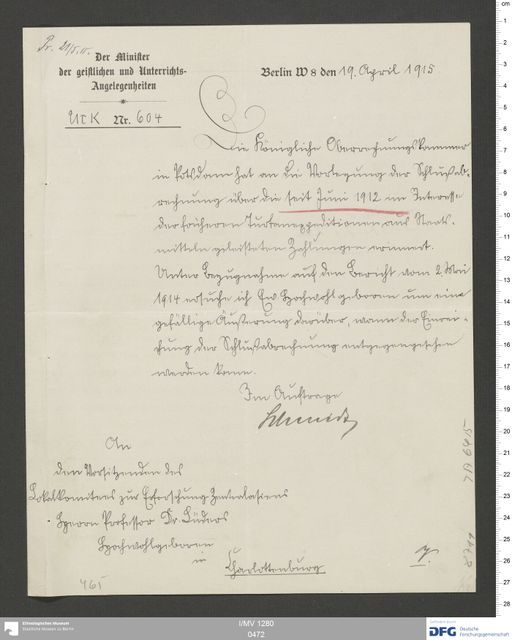 Pr. 21/5. 15.
Der Minister
der geistlichen und Unterrichts-
Angelegenheiten
UIK Nr. 604
Berlin W 8 den 19. April 1915.
Die Königliche Oberrechnungskammer
in Potsdam hat an die Vorlegung der Schlußab-
rechnung über die seit Juni 1912 im Interesse
der früheren Turfanexpeditionen aus Staats-
mitteln geleisteten Zahlungen erinnert.
Unter Bezugnahme auf den Bericht vom 2. Mai
1914 ersuche ich Ew. Hochwohlgeboren um eine
gefällige Äußerung darüber, wann der Einrei-
chung der Schlußabrechnung entgegengesehen
werden kann.
Im Auftrage
Schmidt
An
den Vorsitzenden des
Lokalkomitees zur Erforschung Zentralasiens
Herrn Professor Dr. Lüders
Hochwohlgeboren
in
Charlottenburg.
465
Ethnologisches Museum
Staatliche Museen zu Berlin
I/MV 1280
0472
DFG Deutsche
Forschungsgemeinschaft
cm
1
2
3
4
5
6
7
8
9
10
11
12
13
14
15
16
17
18
19
20
21
22
23
24
25
26
27
28